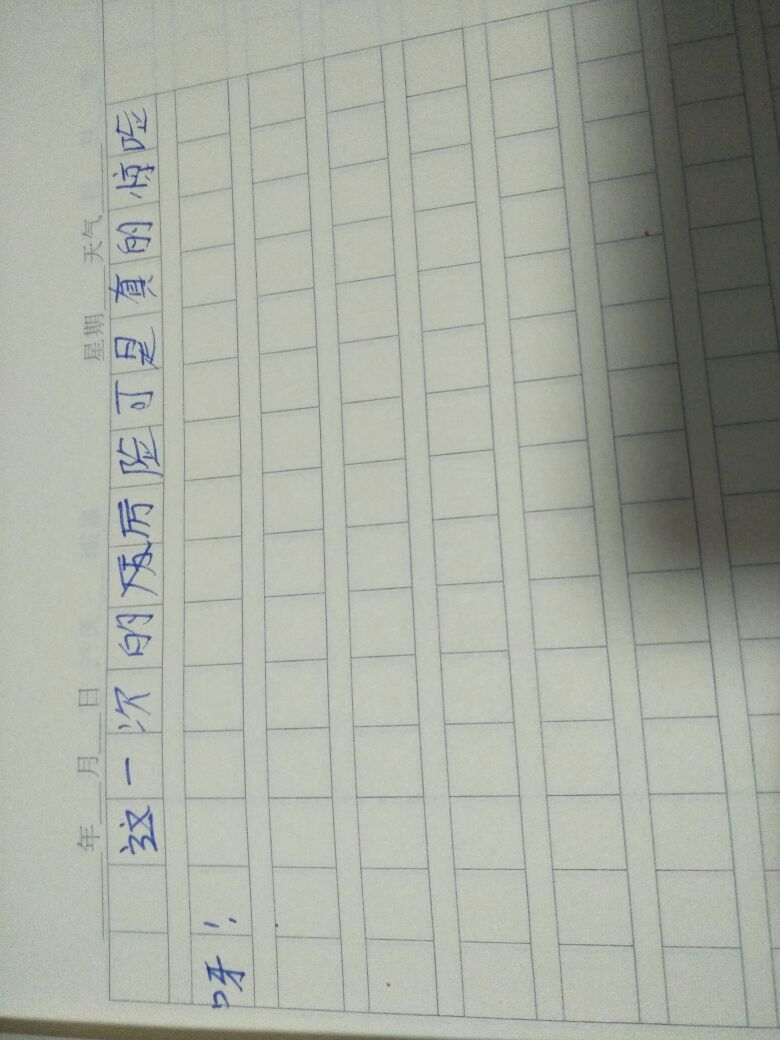 年 月 日 星期 天气
这一次的厉险可是真的惊险
呀!